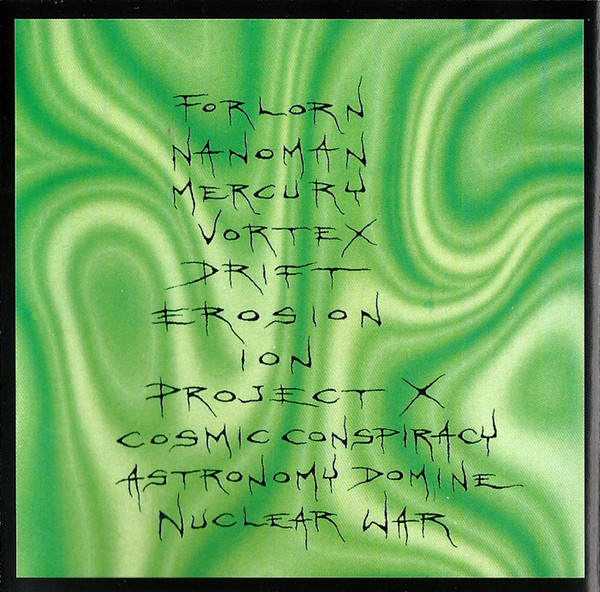 FORLORN
NANOMAN
MERCURY
VORTEX
DRIFT
EROSION
ION
PROJECT X
COSMIC CONSPIRACY
ASTRONOMY DOMINE
NUCLEAR WAR